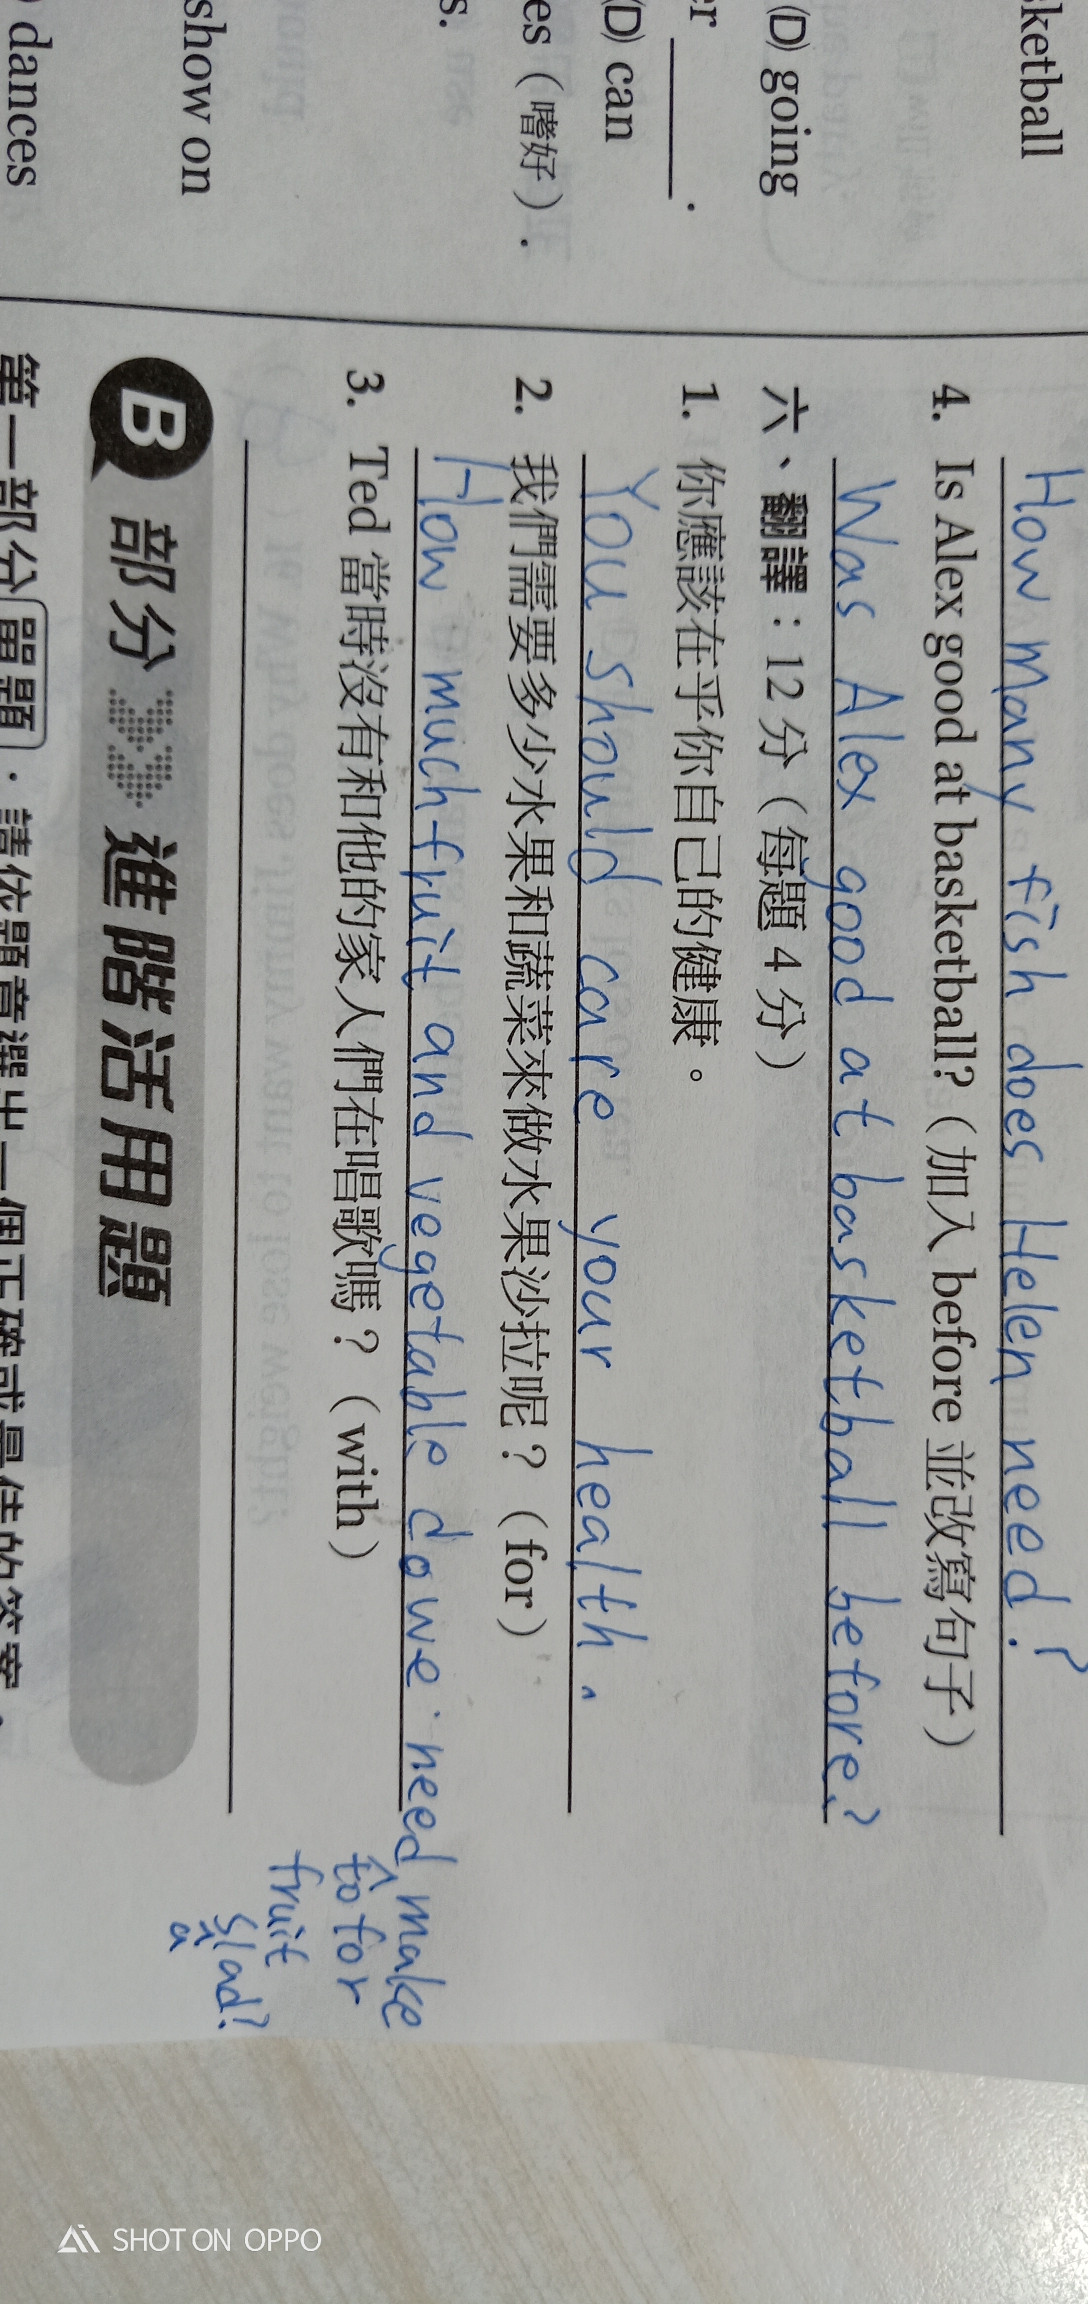 sketball
(D) going
er ______ .
(D) can
es（嗜好）.
s.
show on
) dances
How many fish does Helen need?
4. Is Alex good at basketball?（加入 before 並改寫句子）
Was Alex good at basketball before?
六、翻譯：12 分（每題 4 分）
1. 你應該在乎你自己的健康。
You should care your health.
2. 我們需要多少水果和蔬菜來做水果沙拉呢？（for）
How much fruit and vegetable do we need make
to for
fruit
slad?
a
3. Ted 當時沒有和他的家人們在唱歌嗎？（with）
B 部分 進階活用題
第一部分 單題：請依題意選出一個正確或最佳的答案。
SHOT ON OPPO